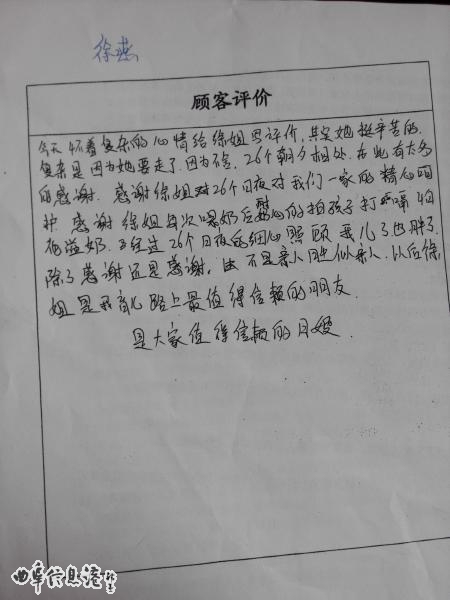 徐燕
顾客评价
今天怀着复杂的心情给徐姐写评价,其实她挺辛苦的.
复杂是因为她要走了.因为不舍,26个朝夕相处.在此有太多
的感谢.感谢徐姐对26个日夜对我们一家的精心呵
护 感谢徐姐每次喂奶后耐心的拍孩子打嗝
溢奶.经过26个日夜的细心照顾 我儿子也胖了
除了感谢还是感谢,不是亲人胜似亲人.以后徐
姐是我育儿路上最值得信赖的朋友.
是大家值得信赖的月嫂.
曲阜信息港